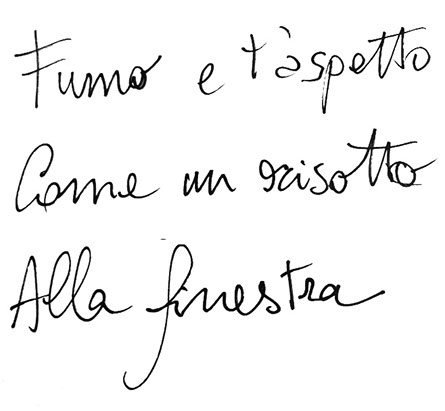 Fumo e t'aspetto
Come un risotto
Alla finestra